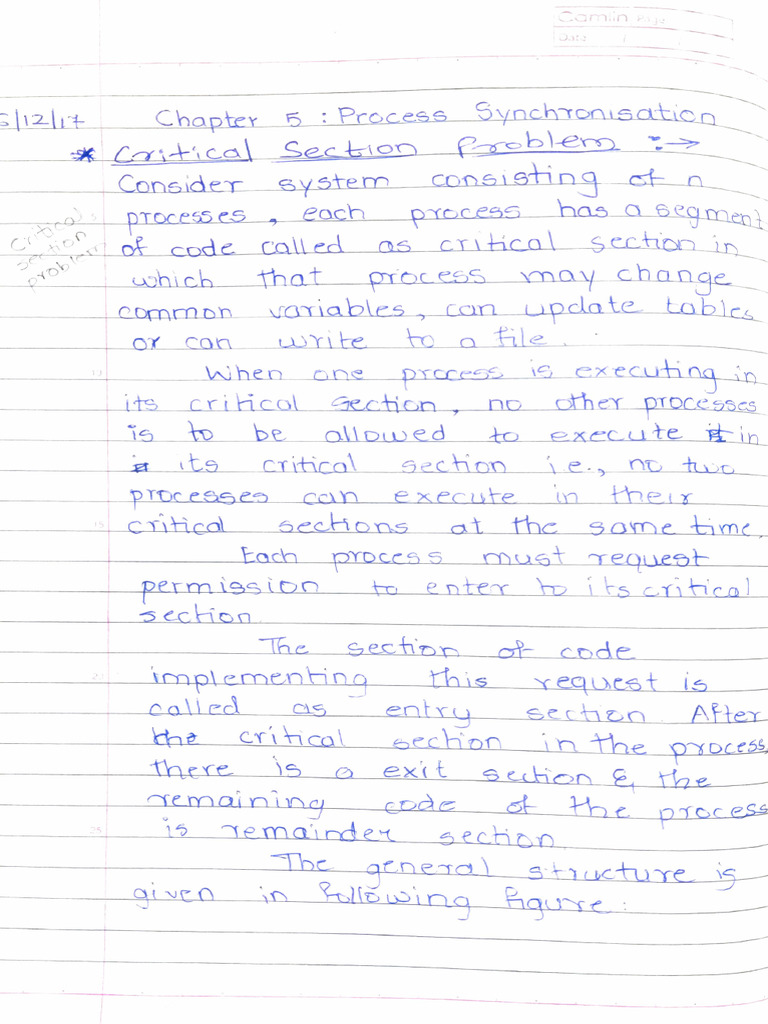 Camlin Page
Date / /
5/12/17 Chapter 5 : Process Synchronisation
* Critical Section Problem :→
Consider system consisting of n
processes, each process has a segment
of code called as critical section in
which that process may change
common variables, can update tables
or can write to a file.
Critical
section
problem
When one process is executing in
its critical section, no other processes
is to be allowed to execute in
its critical section i.e., no two
processes can execute in their
critical sections at the same time.
Each process must request
permission to enter to its critical
section.
The section of code
implementing this request is
called as entry section. After
the critical section in the process,
there is a exit section & the
remaining code of the process
is remainder section.
The general structure is
given in following figure: